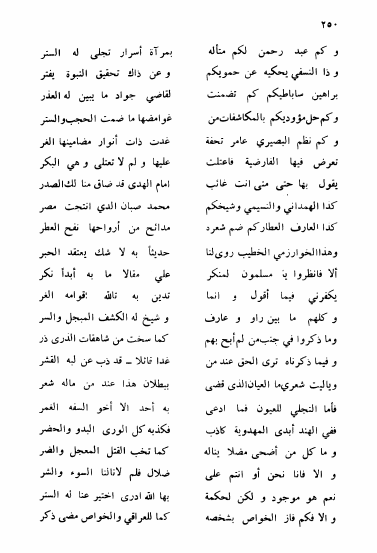 ٢٥٠
و كم عبد رحمن لكم متأله بمرآة أسرار تجلى له الستر
و ذا النسفي يحكيه عن حمويكم و عن ذاك تحقيق النبوة يفتر
براهين ساباطيكم كم تضمنت لقاضي جواد ما يبين له العذر
وكم حل مؤوديكم بالمكاشفات من غوامضها ما ضمت الحجب والستر
و كم نظم البصيري عامر تحفة غدت ذات أنوار مضامينها الغر
تعرض فيها الفارضية فاعتلت عليها و لم لا تعتلى و هي البكر
يقول بها حتى متى انت غائب امام الهدى قد ضاق منا لك الصدر
كذا الهمداني والنسيمي وشيخكم محمد صبان الذي انتجت مصر
كذا العارف العطار كم ضم شعره مدائح من أرواحها نفح العطر
وهذا الخوارزمي الخطيب روى لنا حديثاً به لا شك يعتقد الحبر
ألا فانظروا يا مسلمون لمنكر علي مقالا ما به أبدأ نكر
يكفرني فيما أقول و انما تدين به تالله أقوامه الغر
و كلهم ما بين راو و عارف و شيخ له الكشف المبجل والسر
وما ذكروا في جنب من لم أبح بهم كما سخت من شاهقات الذرى ذر
و فيما ذكرناه ترى الحق عند من غدا قائلا ـ قد ذب عن لبه القشر
وياليت شعري ما العيان الذى قضى ببطلان هذا عند من ماله شعر
فأما التجلي للعيون فما ادعى به أحد الا أخو السفه الغمر
ففي الهند أبدى المهدوية كاذب فكذبه كل الورى البدو والحضر
و ما كل من أضحى مضلا يناله كما تخب القتل المعجل والضر
و الا فانا نحن أو انتم على ضلال فلم لانالنا السوء والشر
نعم هو موجود و لكن لحكمة بها الله ادرى اختير عنا له الستر
و الا فكم فاز الخواص بشخصه كما للعراقي والخواص مضى ذكر